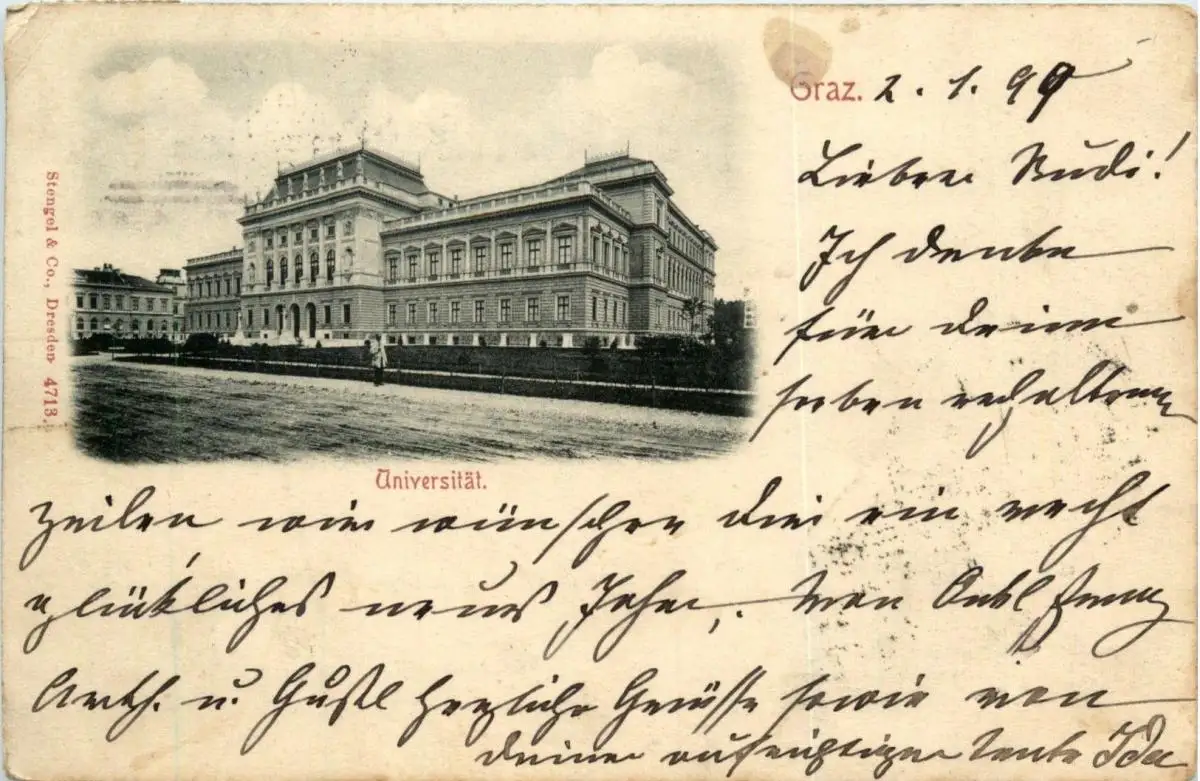 Graz. 2. 1. 99
Lieber Rudi!
Ich danke
für deine
soeben erhaltenen
Stengel & Co., Dresden 4713.
Universität.
Zeilen wir wünschen dir ein recht
glückliches neues Jahr. Von Onkel Franz
Arth. u. Gustl herzliche Grüsse sowie von
deiner aufrichtigen Tante Ida